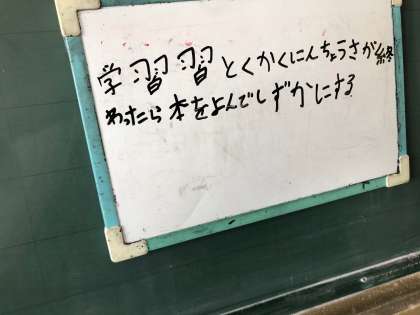 学習習とくかくにんちょうさが終
わったら本をよんでしずかにする